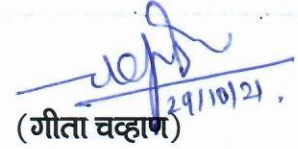 29/10/21.
(गीता चव्हाण)